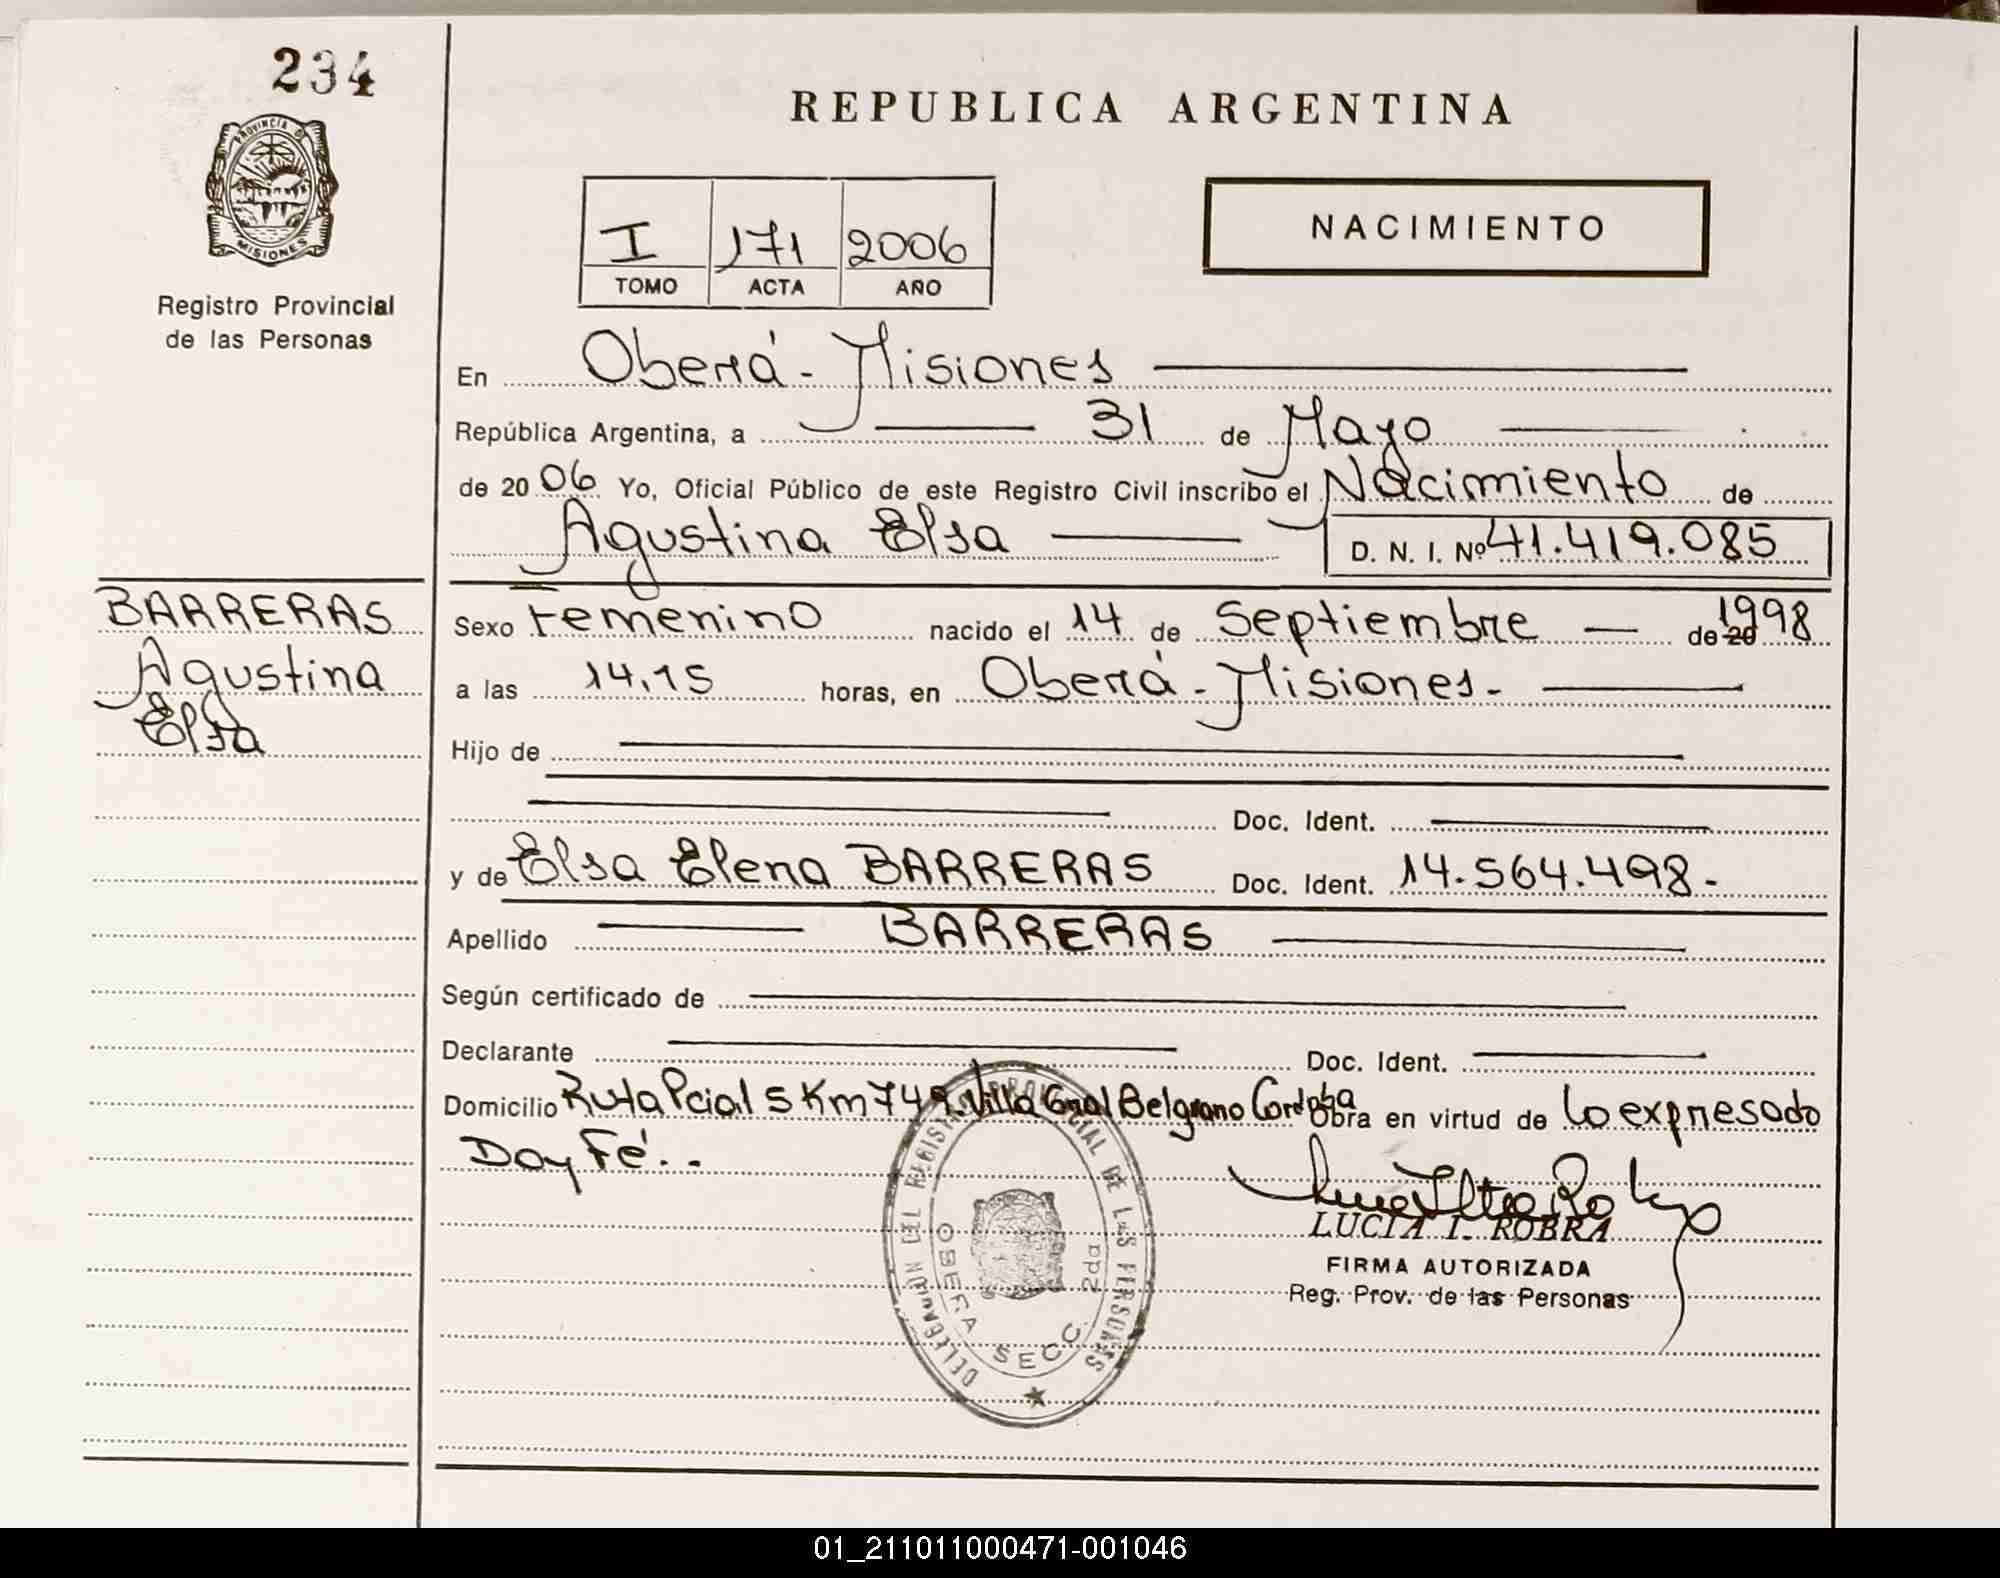 234
PROVINCIA D
MISIONES
Registro Provincial
de las Personas
REPUBLICA ARGENTINA
I 171 2006
TOMO ACTA AÑO
NACIMIENTO
En Oberá - Misiones
República Argentina, a 31 de Mayo
de 20 06 Yo, Oficial Público de este Registro Civil inscribo el Nacimiento de
Agustina Elsa D. N. I. Nº 41.419.085
BARRERAS
Agustina
Elsa
Sexo Femenino nacido el 14 de Septiembre de 20 1998
a las 14,15 horas, en Oberá - Misiones.
Hijo de
Doc. Ident.
y de Elsa Elena BARRERAS Doc. Ident. 14.564.498.-
Apellido BARRERAS
Según certificado de
Declarante Doc. Ident.
Domicilio Ruta Pcial 5 Km 749. Villa Gral Belgrano Cordoba Obra en virtud de lo expresado
Doy Fé.-
LUCIA I. ROBRA
FIRMA AUTORIZADA
Reg. Prov. de las Personas
DELEGACION DEL REGISTRO PROVINCIAL DE LAS PERSONAS
OBERA SECC. 2da
01_211011000471-001046